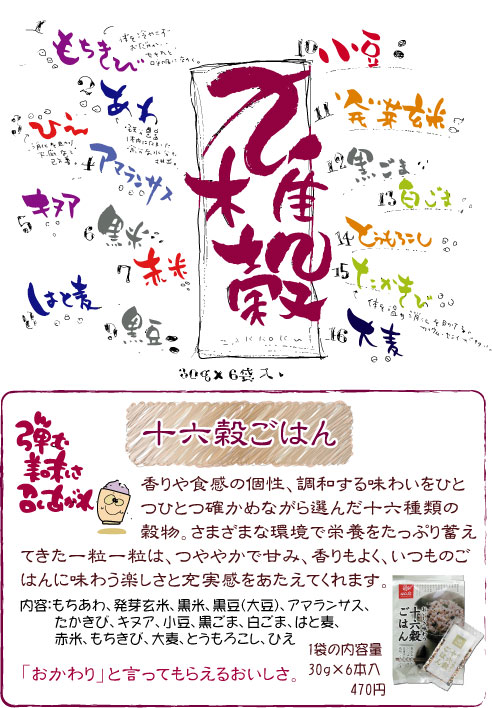 もちきび
2 あわ
3 ひえ
4 アマランサス
5 キヌア
6 黒米
7 赤米
はと麦
9 黒豆
雑穀
ZAKKOKU
30g×6袋入
10 小豆
11 発芽玄米
12 黒ごま
13 白ごま
14 とうもろこし
15 たかきび
16 大麦
弾む
美味しさ
召しあがれ
十六穀ごはん
香りや食感の個性、調和する味わいをひと
つひとつ確かめながら選んだ十六種類の
穀物。さまざまな環境で栄養をたっぷり蓄え
てきた一粒一粒は、つややかで甘み、香りもよく、いつものご
はんに味わう楽しさと充実感をあたえてくれます。
内容:もちあわ、発芽玄米、黒米、黒豆(大豆)、アマランサス、
たかきび、キヌア、小豆、黒ごま、白ごま、はと麦、
赤米、もちきび、大麦、とうもろこし、ひえ
「おかわり」と言ってもらえるおいしさ。
1袋の内容量
30g×6本入
470円
十六穀
ごはん